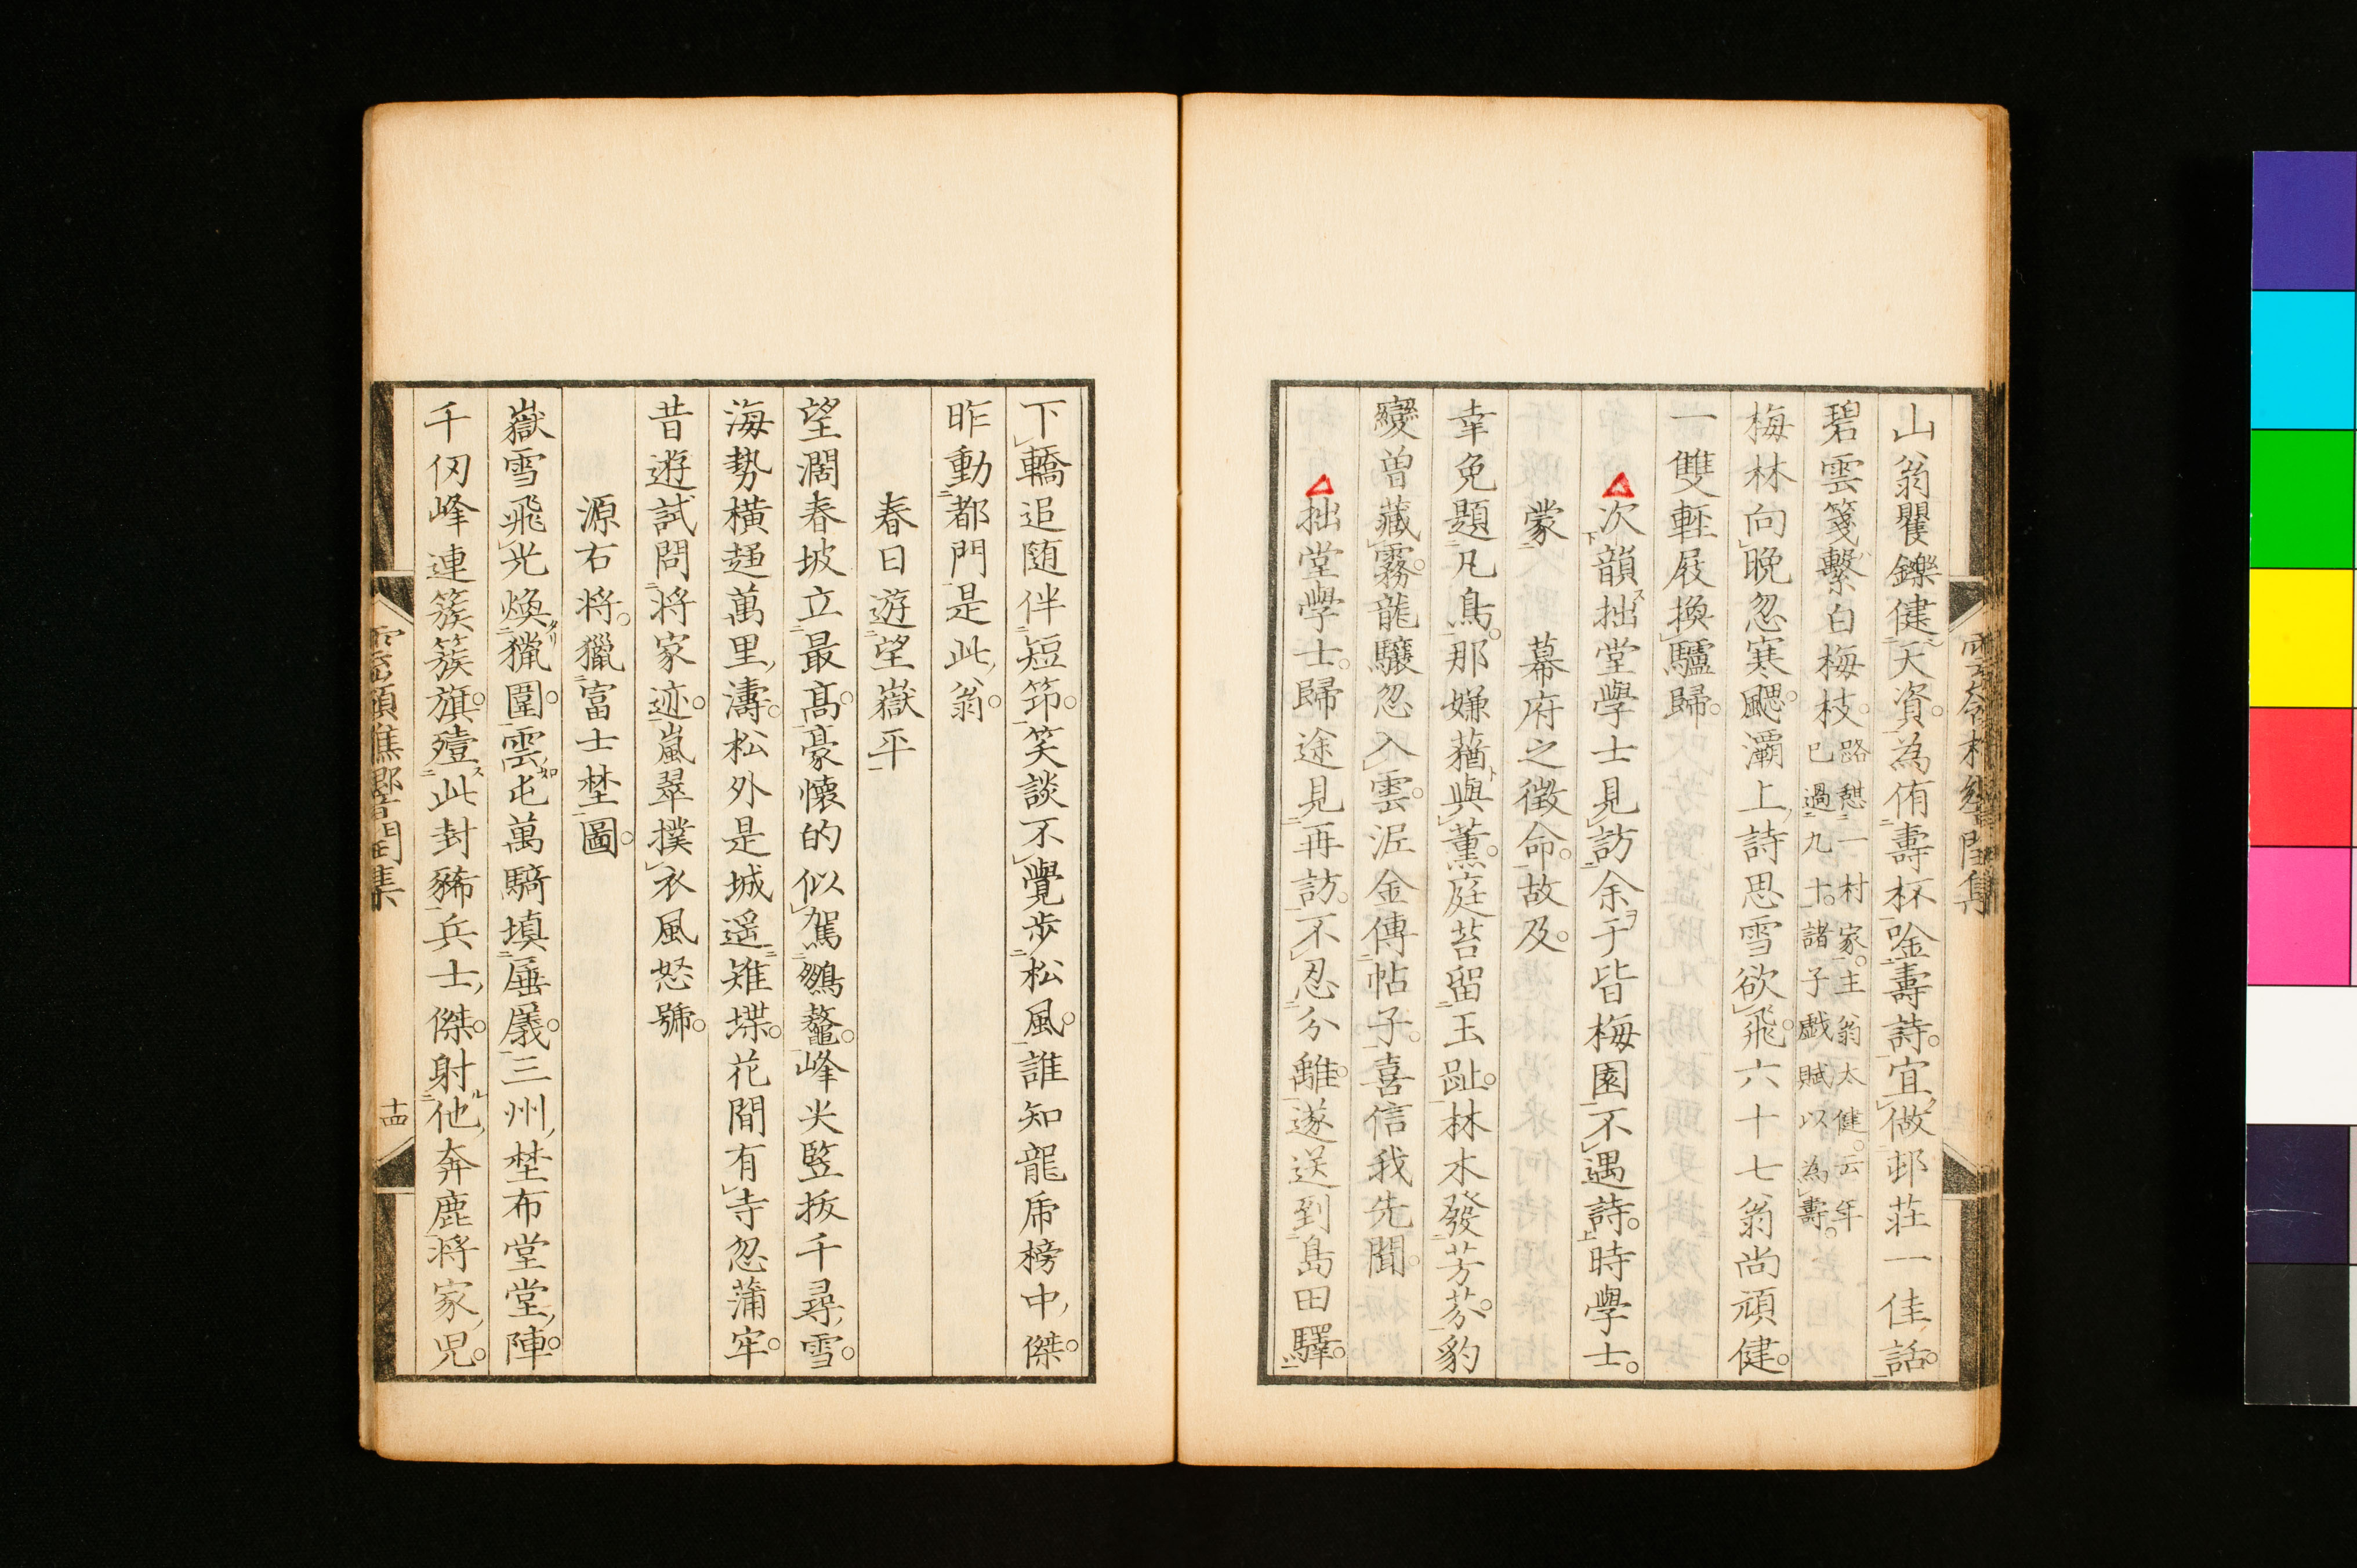 山翁矍鑠健天資。為侑壽杯唫壽詩。宜做邨莊一佳話。
碧雲箋繫白梅枝。路憩一村家。主翁太健。云年
已過九十。諸子戲賦以為壽。
梅林向晚忽寒颸。灞上詩思雪欲飛。六十七翁尚頑健。
一雙輕屐換驢歸。
次韻拙堂學士見訪余于皆梅園不遇詩。時學士。
蒙 幕府之徵命。故及。
幸免題凡鳥。那嫌蕕與薰。庭苔留玉趾。林木發芳芬。豹
變曽藏霧。龍驤忽入雲。泥金傳帖子。喜信我先聞。
拙堂學士。歸途見再訪。不忍分離。遂送到島田驛。
下轎追随伴短筇。笑談不覺步松風。誰知龍乕榜中傑。
昨動都門是此翁。
春日遊望嶽平
望濶春坡立最髙。豪懷的似駕鷁鼇。峰尖竪拔千尋雪。
海勢橫趨萬里濤。松外是城遥雉堞。花間有寺忽蒲牢。
昔遊試問將家迹。嵐翠撲衣風怒號。
源右將。獵富士埜圖。
嶽雪飛光煥獵圍。雲屯萬騎填厜㕒。三州埜布堂堂陣。
千仞峰連簇簇旗。殪此封豨兵士傑。射他奔鹿將家児。
十四